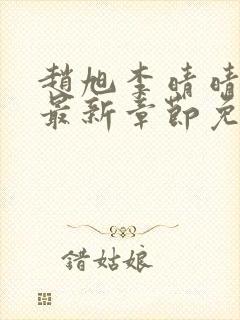 趙旭李晴晴
最新章節免
錯姑娘